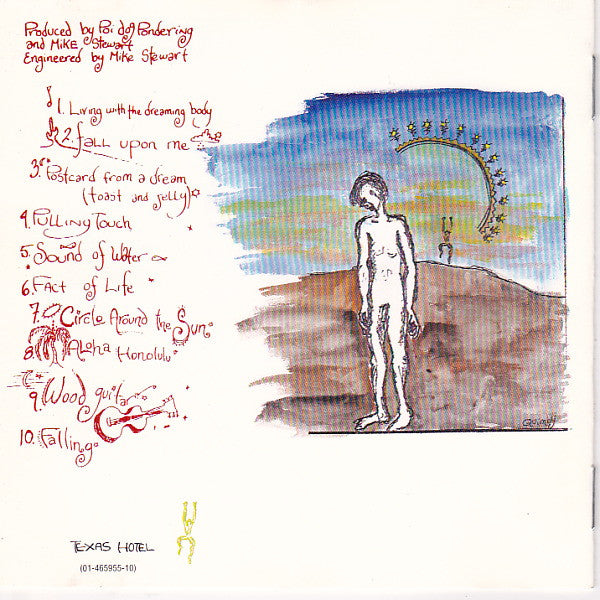 Produced by Poi dog Pondering
and Mike Stewart
Engineered by Mike Stewart
1. Living with the dreaming body
2. fall upon me
3. Postcard from a dream
(toast and jelly)
4. Pulling Touch
5. Sound of Water
6. Fact of Life
7. Circle Around the Sun
8. Aloha Honolulu
9. Wood guitar
10. Falling
TEXAS HOTEL
(01-465955-10)